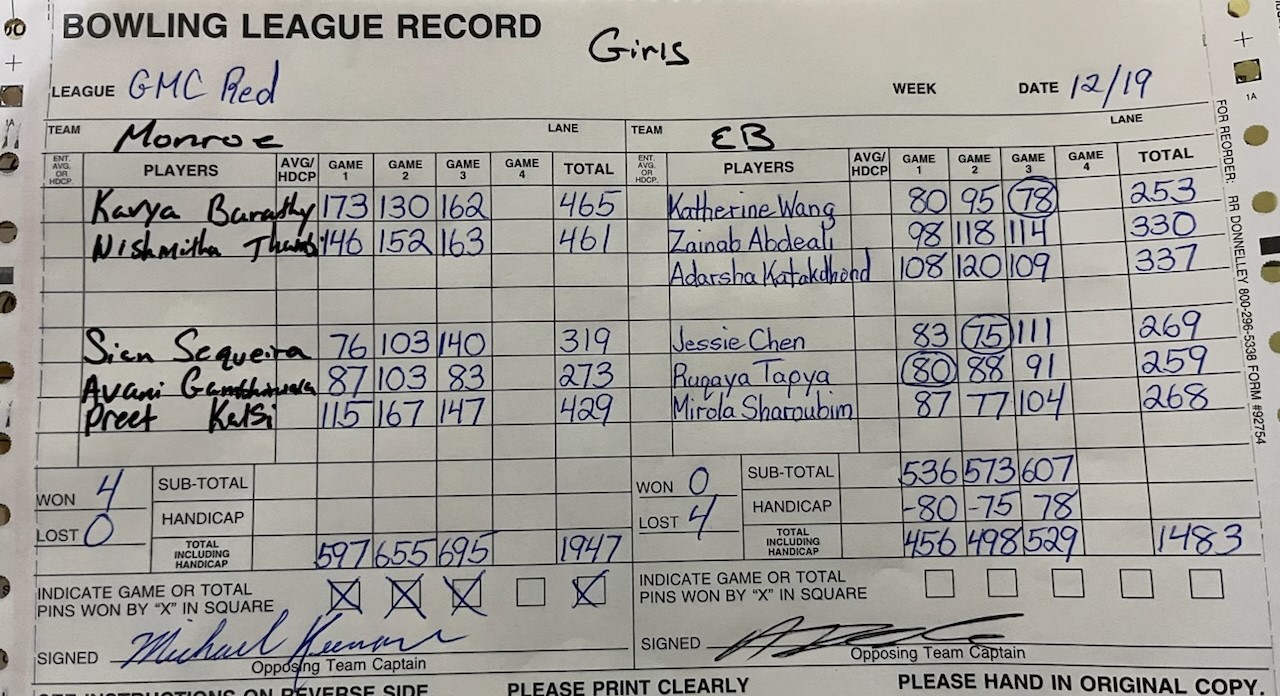 BOWLING LEAGUE RECORD
Girls
LEAGUE GMC Red WEEK DATE 12/19
TEAM Monroe LANE TEAM EB LANE
ENT. AVG. OR HDCP. PLAYERS AVG/ HDCP GAME 1 GAME 2 GAME 3 GAME 4 TOTAL ENT. AVG. OR HDCP. PLAYERS AVG/ HDCP GAME 1 GAME 2 GAME 3 GAME 4 TOTAL
Kavya Barathy 173 130 162 465 Katherine Wang 80 95 78 253
Nishmitha 146 152 163 461 Zainab Abdeali 98 118 114 330
Adarsha Katakdhond 108 120 109 337
Sian Sequeira 76 103 140 319 Jessie Chen 83 75 111 269
Avani 87 103 83 273 Ruqaya Tapya 80 88 91 259
Preet Kalsi 115 167 147 429 Mirola Sharoubim 87 77 104 268
WON 4 SUB-TOTAL WON 0 SUB-TOTAL 536 573 607
LOST 0 HANDICAP LOST 4 HANDICAP -80 -75 78
TOTAL INCLUDING HANDICAP 597 655 695 1947 TOTAL INCLUDING HANDICAP 456 498 529 1483
INDICATE GAME OR TOTAL PINS WON BY "X" IN SQUARE X X X X INDICATE GAME OR TOTAL PINS WON BY "X" IN SQUARE
SIGNED Michael SIGNED
Opposing Team Captain Opposing Team Captain
SEE INSTRUCTIONS ON REVERSE SIDE PLEASE PRINT CLEARLY PLEASE HAND IN ORIGINAL COPY.
FOR REORDER: RR DONNELLEY 800-296-5338 FORM #92754
1A
1A